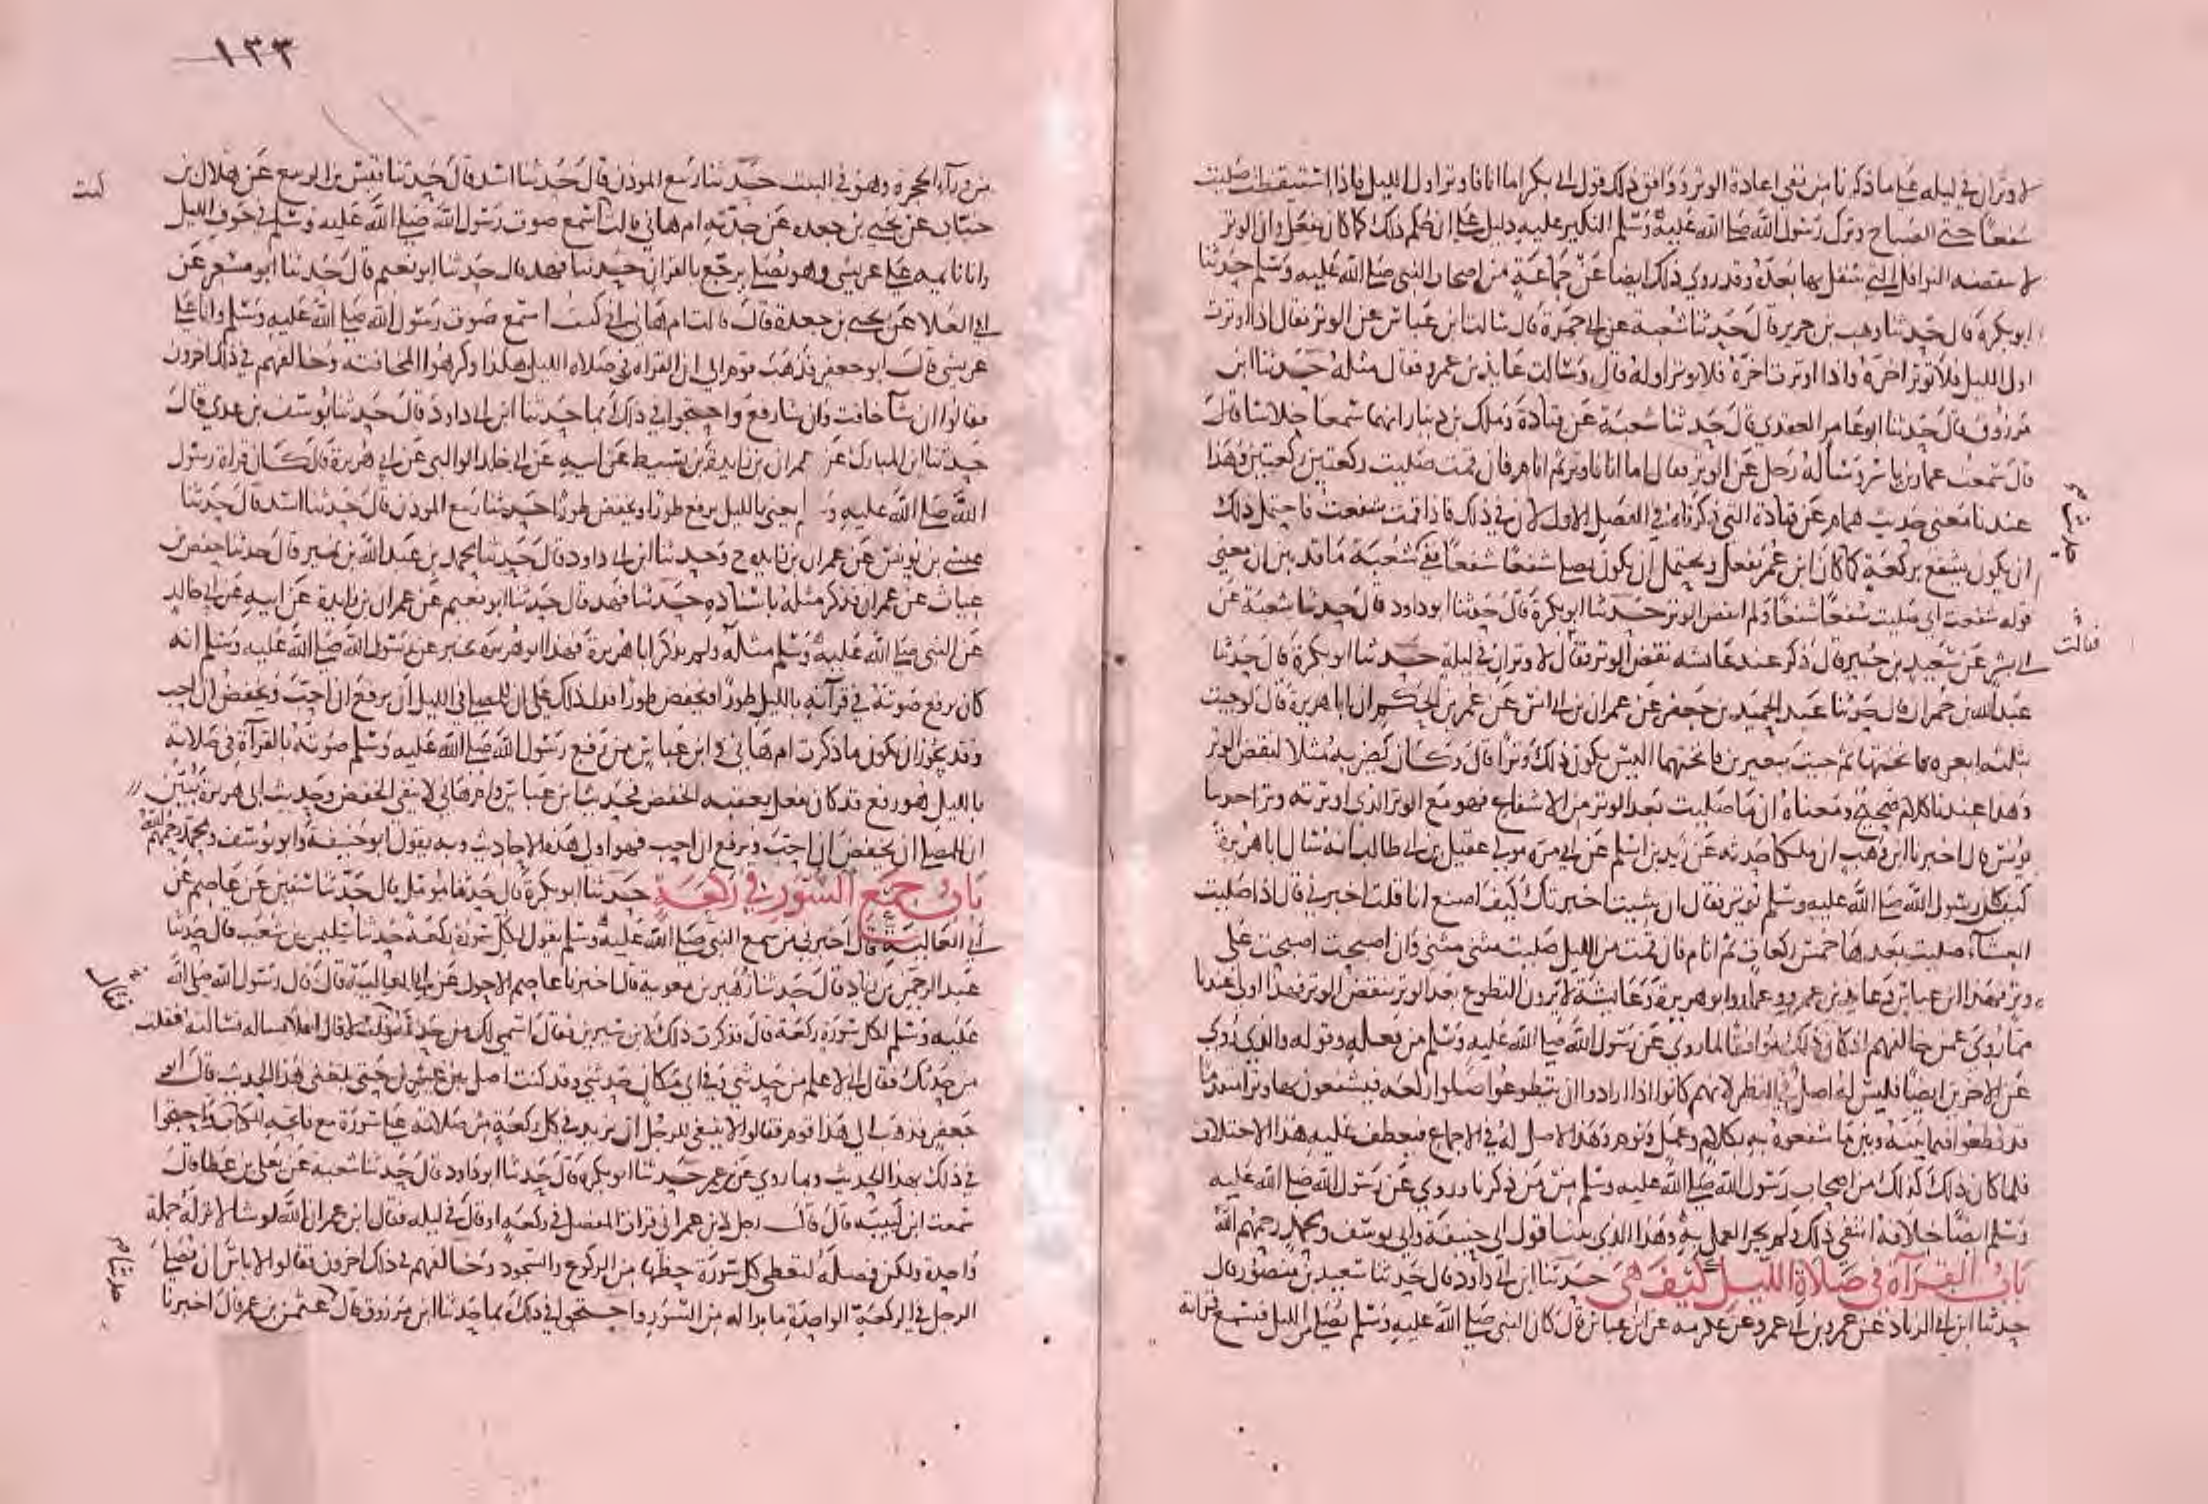 لا وتران في ليلة على ما ذكرنا من نفي اعادة الوتر ووافق ذلك قول ابي بكر اما انا فاوتر اول الليل فاذا استيقظت صليت
شفعا حتى الصباح وترك رسول الله صلى الله عليه وسلم النكير عليه دليل على ان حكم ذلك كما كان يفعل وان الوتر
لا ينقضه النوافل التي يتنفل بها بعده وقد روي ذلك ايضا عن جماعة من اصحاب النبي صلى الله عليه وسلم حدثنا
ابو بكرة قال حدثنا وهب بن جرير قال حدثنا شعبة عن ابي حمزة قال سالت ابن عباس عن الوتر فقال اذا اوترت
اول الليل فلا توتر اخره واذا اوترت اخره فلا توتر اوله قال وسالت عايذ بن عمرو فقال مثله حدثنا ابن
مرزوق قال حدثنا ابو عامر العقدي قال حدثنا شعبة عن قتادة وملك بن دينار انهما سمعا خلاسا قال
قال سمعت عمار بن ياسر وساله رجل عن الوتر فقال اما انا فاوتر ثم انام فان قمت صليت ركعتين ركعتين وهذا
عندنا معنى حديث همام عن قتادة الذي ذكرناه في الفصل الاول لان في ذلك فاذا قمت شفعت فاحتمل ذلك
ان يكون يشفع بركعة كما كان ابن عمر يفعل ويحتمل ان يكون يصلي شفعا شفعا ففي شعبة ما قد بين ان معنى
قوله شفعت اي صليت شفعا شفعا ولم انقض الوتر حدثنا ابو بكرة قال حدثنا ابو داود قال حدثنا شعبة عن
ابي بشر عن سعيد بن جبير قال ذكر عند عائشه نقض الوتر فقال لا وتران في ليلة حدثنا ابو بكرة قال حدثنا
فقالت
عبد الله بن حمران قال حدثنا عبد الحميد بن جعفر عن عمران بن ابي انس عن عمر بن الحكم ان ابا هريرة قال لو جيت
بثلثه ابعره فانختها ثم جيت ببعيرين فانختهما اليس يكون ذلك وترا قال وكان يضربه مثلا لنقض الوتر
وهذا عندنا كلام صحيح ومعناه ان ما صليت بعد الوتر من الاشفاع فهو مع الوتر الذي اوترته وترا حدثنا
يونس قال اخبرنا ابن وهب ان ملكا حدثه عن زيد بن اسلم عن ابي مره مولى عقيل بن ابي طالب انه سال ابا هريرة
كيف كان رسول الله صلى الله عليه وسلم يوتر فقال ان شيت اخبرتك كيف اصنع انا قلت اخبرني قال اذا صليت
العشاء صليت بعدها خمس ركعات ثم انام فان قمت من الليل صليت مثنى مثنى وان اصبحت اصبحت على
وتر فهذا ابن عباس وعايذ بن عمرو وعمار وابو هريرة وعائشة لا يرون التطوع بعد الوتر ينقض الوتر فهذا اولى عندنا
مما روي عمن خالفهم اذ كان ذلك موافقا لما روي عن رسول الله صلى الله عليه وسلم من فعله وقوله والذي روي
عن الاخرين ايضا فليس له اصل في النظر لانهم كانوا اذا ارادوا ان يتطوعوا صلوا ركعه فيشفعون بها وترا متقدما
قد قطعوا فيما بينه وبين ما شفعوه به بكلام وعمل ونوم وهذا لا اصل له في الاجماع فيعطف عليه هذا الاختلاف
فلما كان ذلك كذلك من اصحاب رسول الله صلى الله عليه وسلم من ذكرنا وروي عن رسول الله صلى الله عليه
وسلم ايضا خلافه انتفى ذلك ولم يجز العمل به وهذا الذي بينا قول ابي حنيفة وابي يوسف ومحمد رحمهم الله
باب القرآءة في صلاة الليل كيف هي حدثنا ابن ابي داود قال حدثنا سعيد بن منصور قال
حدثنا ابن ابي الزناد عن عمرو بن ابي عمرو عن عكرمه عن ابن عباس قال كان النبي صلى الله عليه وسلم يصلي من الليل فتسمع قرائته
١٣٣
من ورآء الحجرة وهو في البيت حدثنا ربيع الموذن قال حدثنا اسد قال حدثنا قيس بن الربيع عن هلال بن
حباب عن يحيى بن جعدة عن جدته ام هاني قالت اسمع صوت رسول الله صلى الله عليه وسلم في جوف الليل
وانا نايمه على عريشي وهو يصلي يرجع بالقران حدثنا فهد قال حدثنا ابو نعيم قال حدثنا ابو مسعر عن
ابي العلا عن يحيى بن جعدة قال قالت ام هاني اني كنت استمع صوت رسول الله صلى الله عليه وسلم وانا على
عريشي قال ابو جعفر فذهب قوم الى ان القراه في صلاه الليل هكذا وكرهوا المخافته وخالفهم في ذلك اخرون
فقالوا ان شآ خافت وان شا رفع واحتجوا في ذلك بما حدثنا ابن ابي داود قال حدثنا يوسف بن عدي قال
حدثنا ابن المبارك عن عمران بن زايدة بن نشيط عن ابيه عن ابي خالد الوالبي عن ابي هريرة قال كان قراة رسول
الله صلى الله عليه و م يعني بالليل يرفع طورا ويخفض طورا حدثنا ربيع الموذن قال حدثنا اسد قال حدثنا
عيسى بن يونس عن عمران بن زايده ح وحدثنا ابن ابي داود قال حدثنا محمد بن عبد الله بن نمير قال حدثنا حفص بن
غياث عن عمران فذكر مثله باسناده حدثنا فهد قال حدثنا ابو نعيم عن عمران بن زايدة عن ابيه عن ابي خالد
عن النبي صلى الله عليه وسلم مثله ولم يذكر ابا هريرة فهذا ابو هريرة يخبر عن رسول الله صلى الله عليه وسلم انه
كان يرفع صوته في قرآته بالليل طورا ويخفض طورا فدل ذلك على ان للمصلي في الليل ان يرفع ان احب ويخفض ان احب
وقد يجوز ان يكون ما ذكرت ام هاني وابن عباس من رفع رسول الله صلى الله عليه وسلم صوته بالقرآة في صلاته
بالليل هو رفع قد كان يفعل بعقبه الخفض فحديثا ابن عباس وام هاني لا ينفي الخفض وحديث ابي هريرة يبين
ان للمصلي ان يخفض ان احب ويرفع ان احب فهو اولى هذه الاحاديث وبه يقول ابو حنيفة وابو يوسف ومحمد رحمهم الله
باب جمع السور في ركعة حدثنا ابو بكرة قال حدثنا مومل قال حدثنا سفين عن عاصم عن
ابي العالية قال اخبرني من سمع النبي صلى الله عليه وسلم يقول لكل سورة ركعة حدثنا سليمن بن شعيب قال حدثنا
عبد الرحمن بن زياد قال حدثنا زهير بن معوية قال اخبرنا عاصم الاحول عن ابي العالية قال قال رسول الله صلى الله
عليه وسلم لكل سورة ركعة قال فذكرت ذلك لابن سيرين فقال اسمى لك من حدثه قلت لا قال افلا تساله فسالته فقلت
فقال
من حدثك فقال اني لاعلم من حدثني وفي اي مكان حدثني وقد كنت اصلي بين عشرين حتى بلغني هذا الحديث قال ابو
جعفر فذهب الى هذا قوم فقالوا لا ينبغي للرجل ان يزيد في كل ركعة من صلاته على سورة مع فاتحة الكتاب واحتجوا
في ذلك بهذا الحديث وبما روي عن ابن عمر حدثنا ابو بكرة قال حدثنا ابو داود قال حدثنا شعبه عن يعلى بن عطا قال
سمعت ابن لبيبة قال قال رجل لابن عمر اني قرات المفصل في ركعه او قال في ليله فقال ابن عمر ان الله لو شا لانزله جملة
واحدة ولكن فصله لتعطى كل سورة حظها من الركوع والسجود وخالفهم في ذلك اخرون فقالوا لا باس ان يصلي
الرجل في الركعة الواحدة ما بدا له من السور واحتجوا في ذلك بما حدثنا ابن مرزوق قال عثمن بن عمر قال اخبرنا